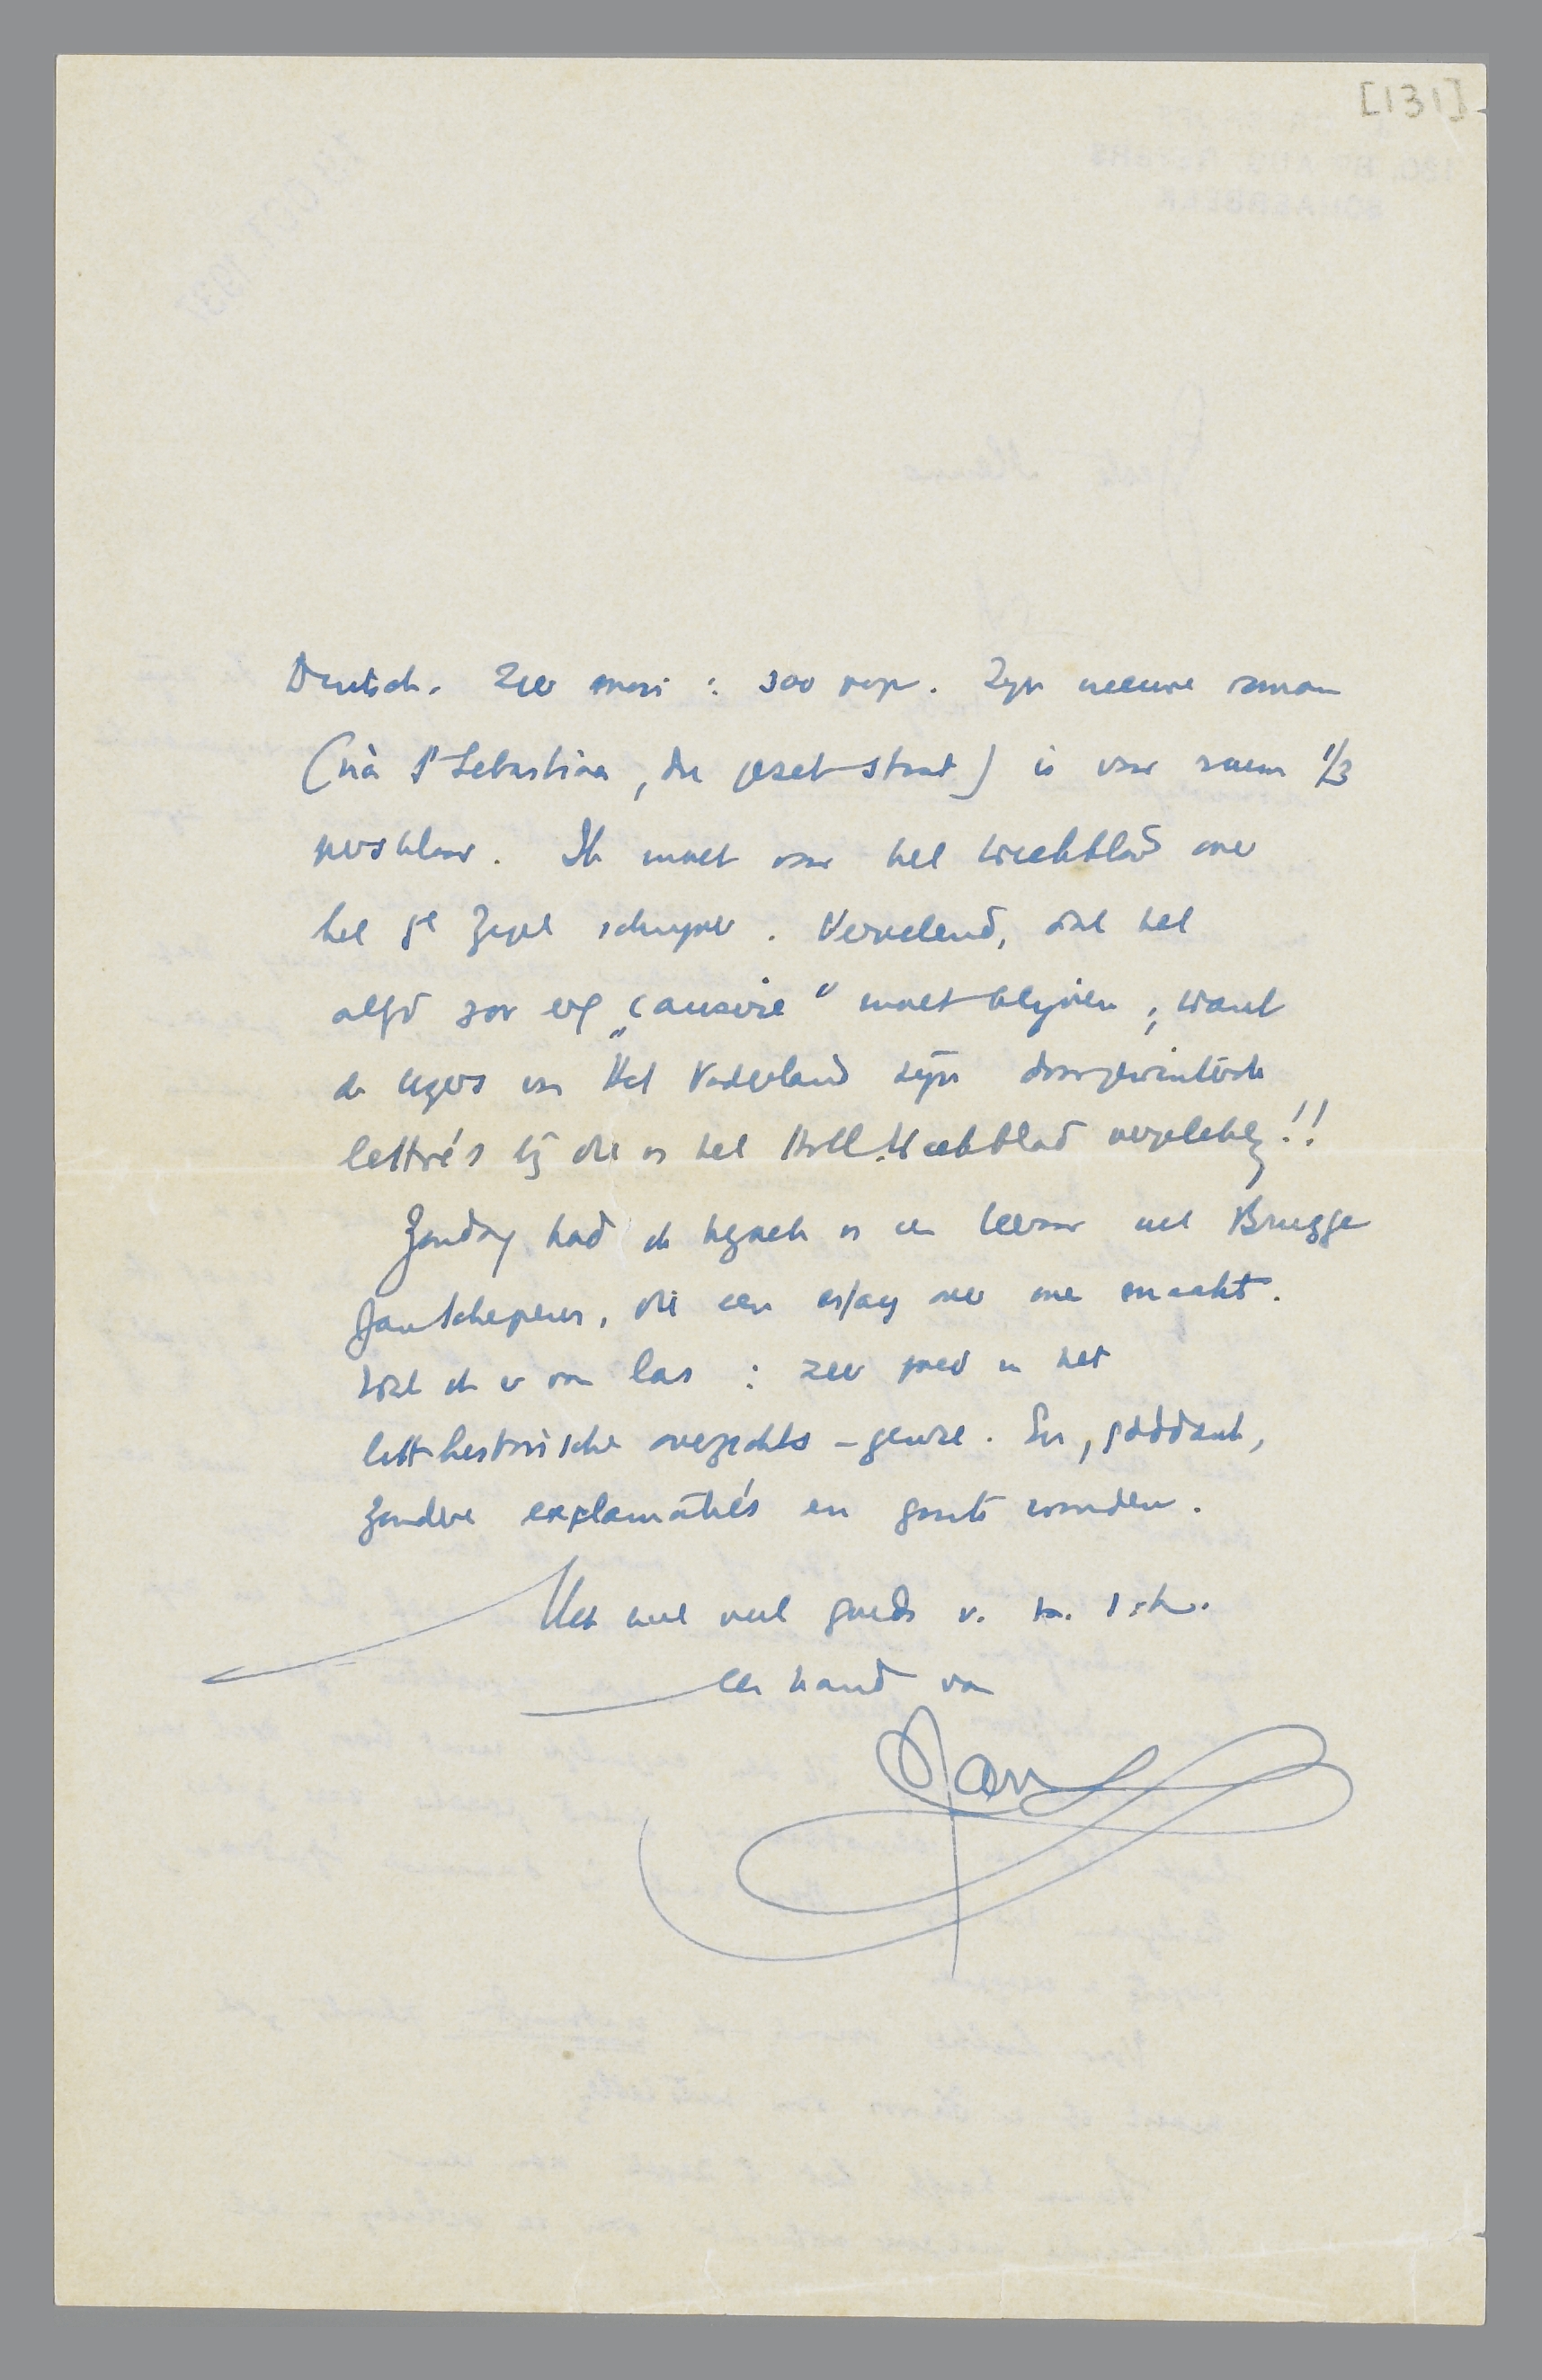 [131]
Deutsch. Zeer mooi: 300 pop. Zijn nieuwe roman
(nà St Sebastiaan, die gezet staat) is voor ruim 1/3
persklaar. Ik moet voor het Weekblad over
het 5e Zegel schrijven. Vervelend, dat het
altijd zoo erg „causerie” moet blijven, want
de lezers van Het Vaderland zijn doorgewinterde
lettré's bij die van het Holl. Weekblad vergeleken!!
Zondag had ik bezoek van een leeraar uit Brugge
Jan Schepens, die een essay over me maakt.
Wat ik er van las: zeer goed in het
litt-historische overzichts-genre. En, goddank,
zonder exclamatie's en groote woorden.
Met veel goeds v. h. t. h.
een hand van
Jan